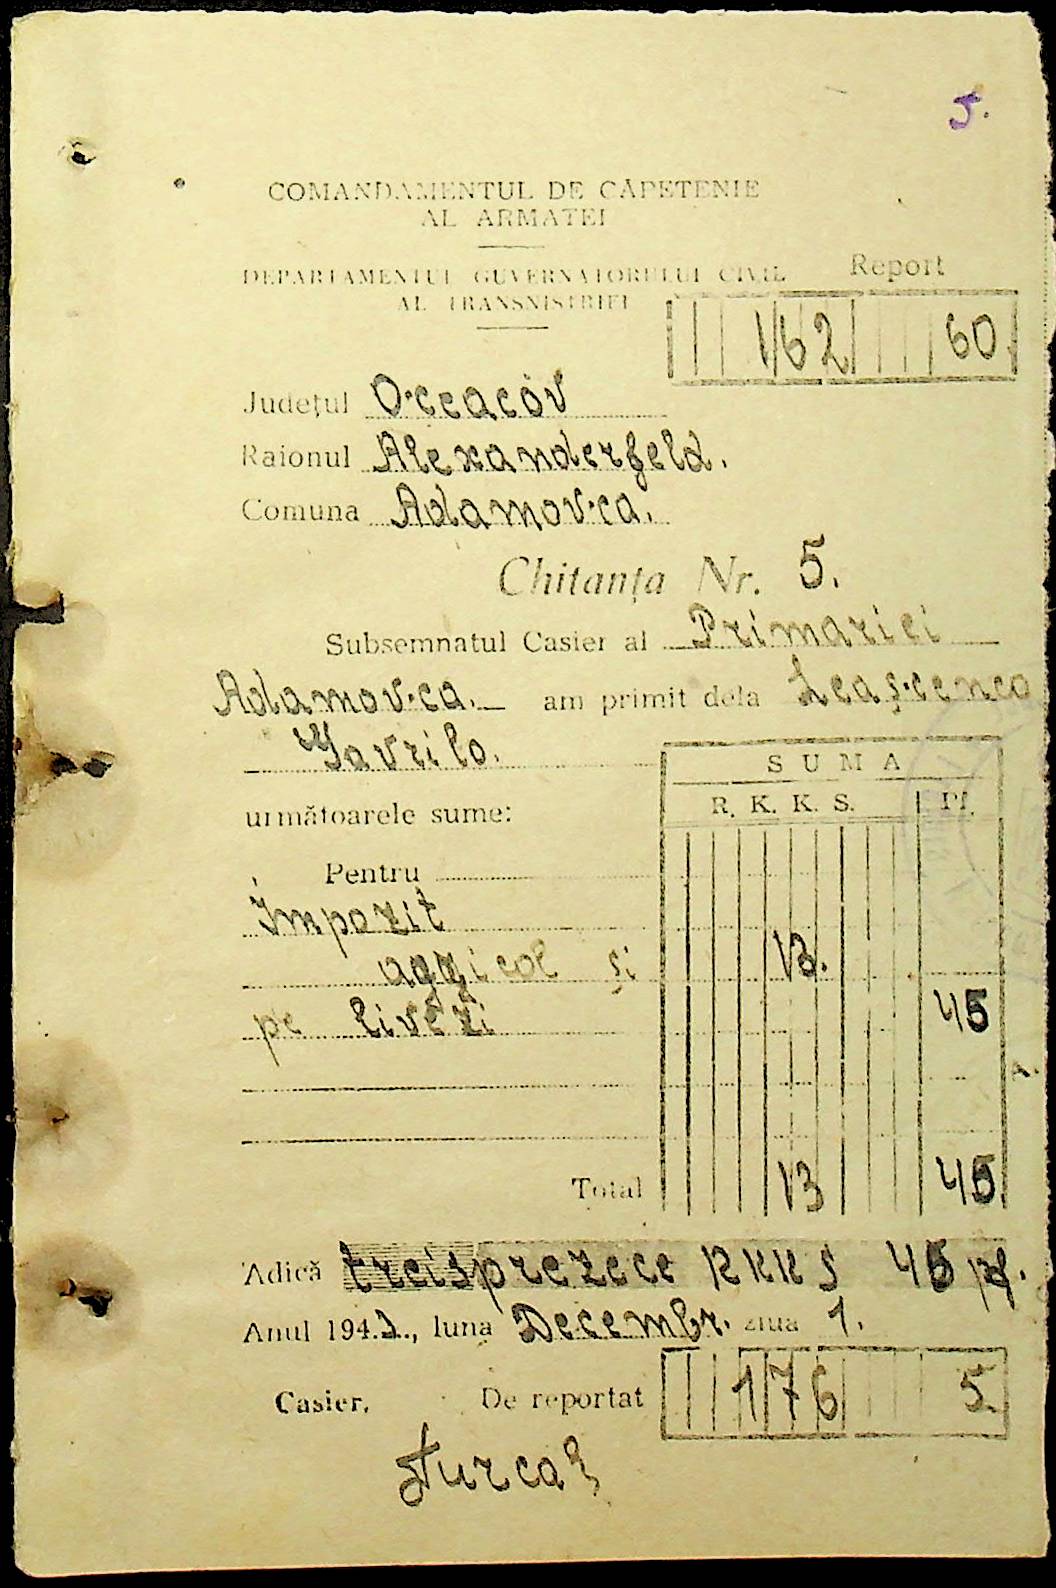 5.
COMANDAMENTUL DE CĂPETENIE
AL ARMATEI
DEPARTAMENTUL GUVERNATORULUI CIVIL
AL TRANSNISTRIEI
Report
162 60.
Județul Oceacov
Raionul Alexanderfeld.
Comuna Adamovca.
Chitanța Nr. 5.
Subsemnatul Casier al Primariei
Adamovca. am primit dela Leașcenco
Gavrilo.
SUMA
R. K. K. S. Pf.
următoarele sume:
Pentru
Impozit
agricol și 13.
pe livezi 45
Total 13 45
Adică treisprezece RKKS 45 pf.
Anul 1942., luna Decembr. ziua 1.
Casier, De reportat 176 5.